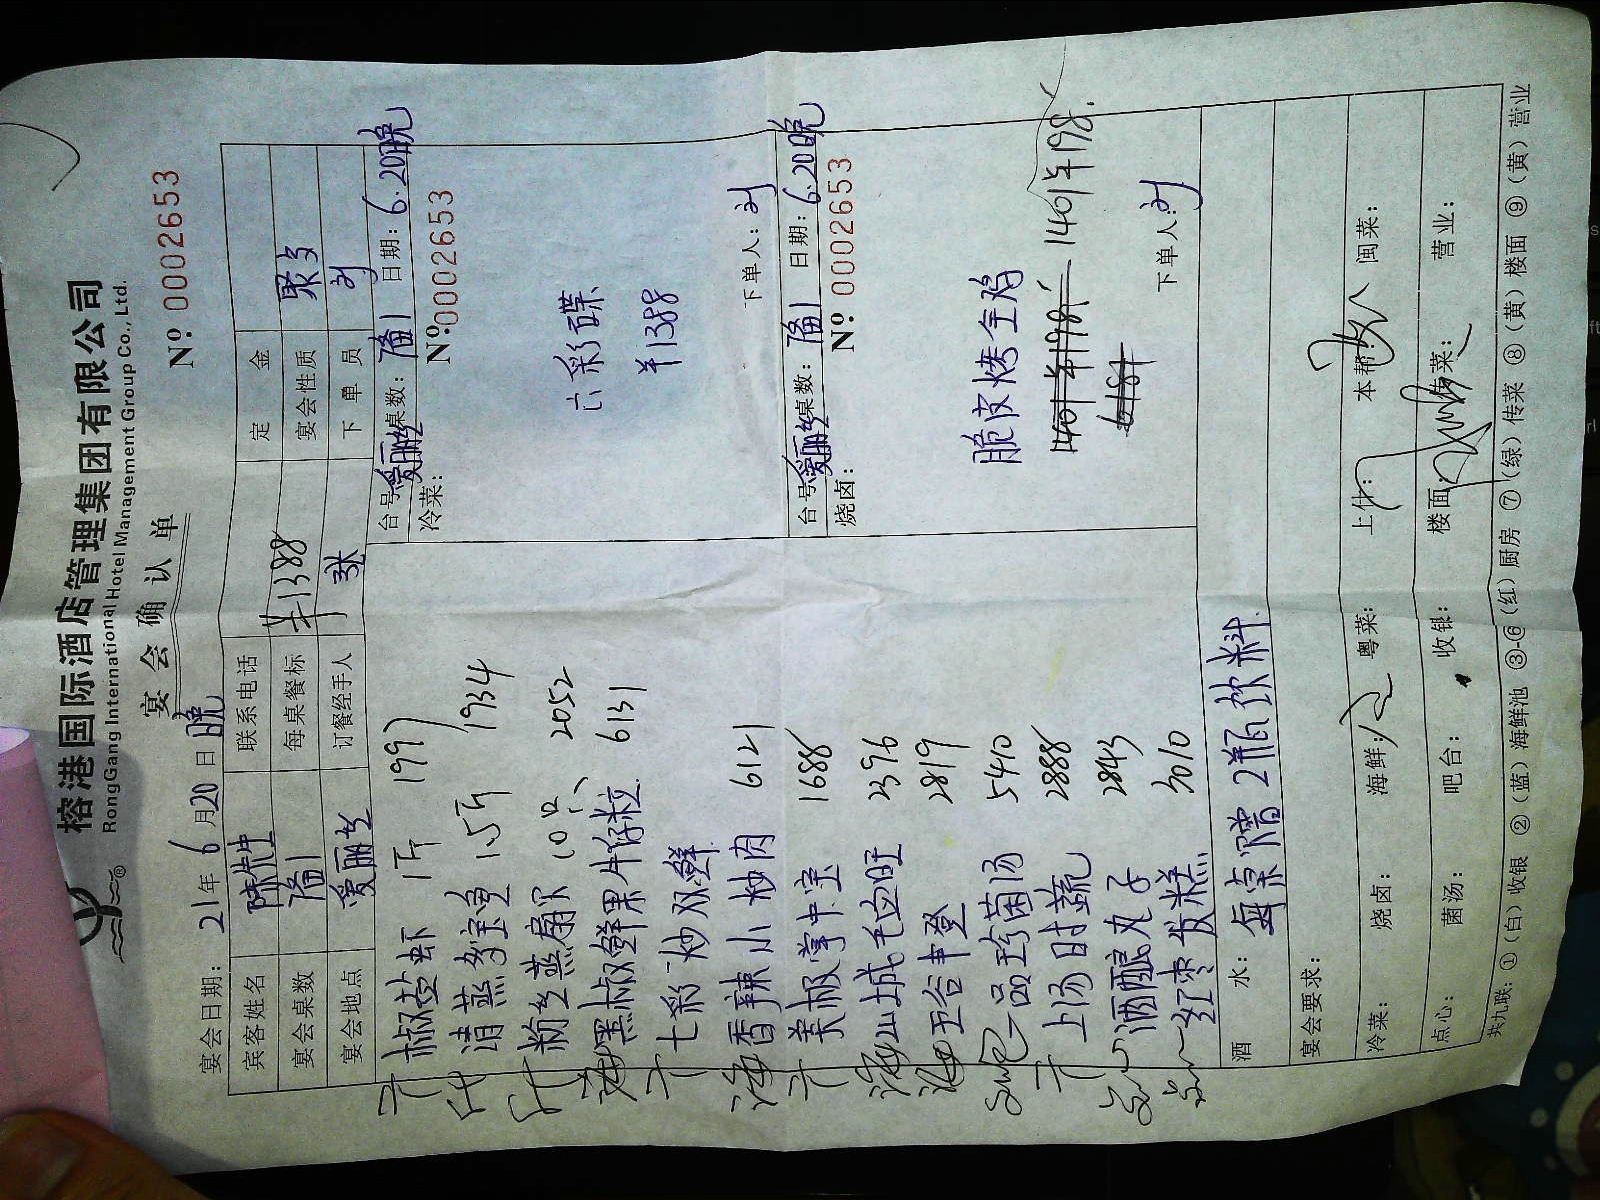 榕港国际酒店管理集团有限公司
RongGang International Hotel Management Group Co., Ltd.
宴会确认单
№ 0002653
宴会日期: 21年6月20日晚
宾客姓名 陈先生 联系电话 定金
宴会桌数 每桌餐标 ¥1388 宴会性质
宴会地点 爱丽丝 订餐经手人 张 下单员 刘
椒盐虾 1斤 1997
清蒸多宝鱼 1.5斤 1934
粉丝蒸扇贝 10只 2052
黑椒鲜果牛仔粒 6131
七彩炒双鲜
香辣小炒肉 6121
美极掌中宝 1688
山城毛血旺 2396
五谷丰登 2819
一品珍菌汤 5410
上汤时蔬 2888
酒酿丸子 2843
红枣发糕 3010
台号: 爱丽丝 桌数: 日期: 6.20晚
冷菜: № 0002653
六彩碟
¥1388
下单人: 刘
台号: 爱丽丝 桌数: 日期: 6.20晚
烧卤: № 0002653
脆皮烤全鸡
1401 ¥198
下单人: 刘
酒水: 每桌赠2瓶饮料
宴会要求:
冷菜: 烧卤: 海鲜: 粤菜: 上什: 本帮: 闽菜:
点心: 菌汤: 吧台: 收银: 楼面: 传菜: 营业:
共九联: ①(白)收银 ②(蓝)海鲜池 ③-⑥(红)厨房 ⑦(绿)传菜 ⑧(黄)楼面 ⑨(黄)营业